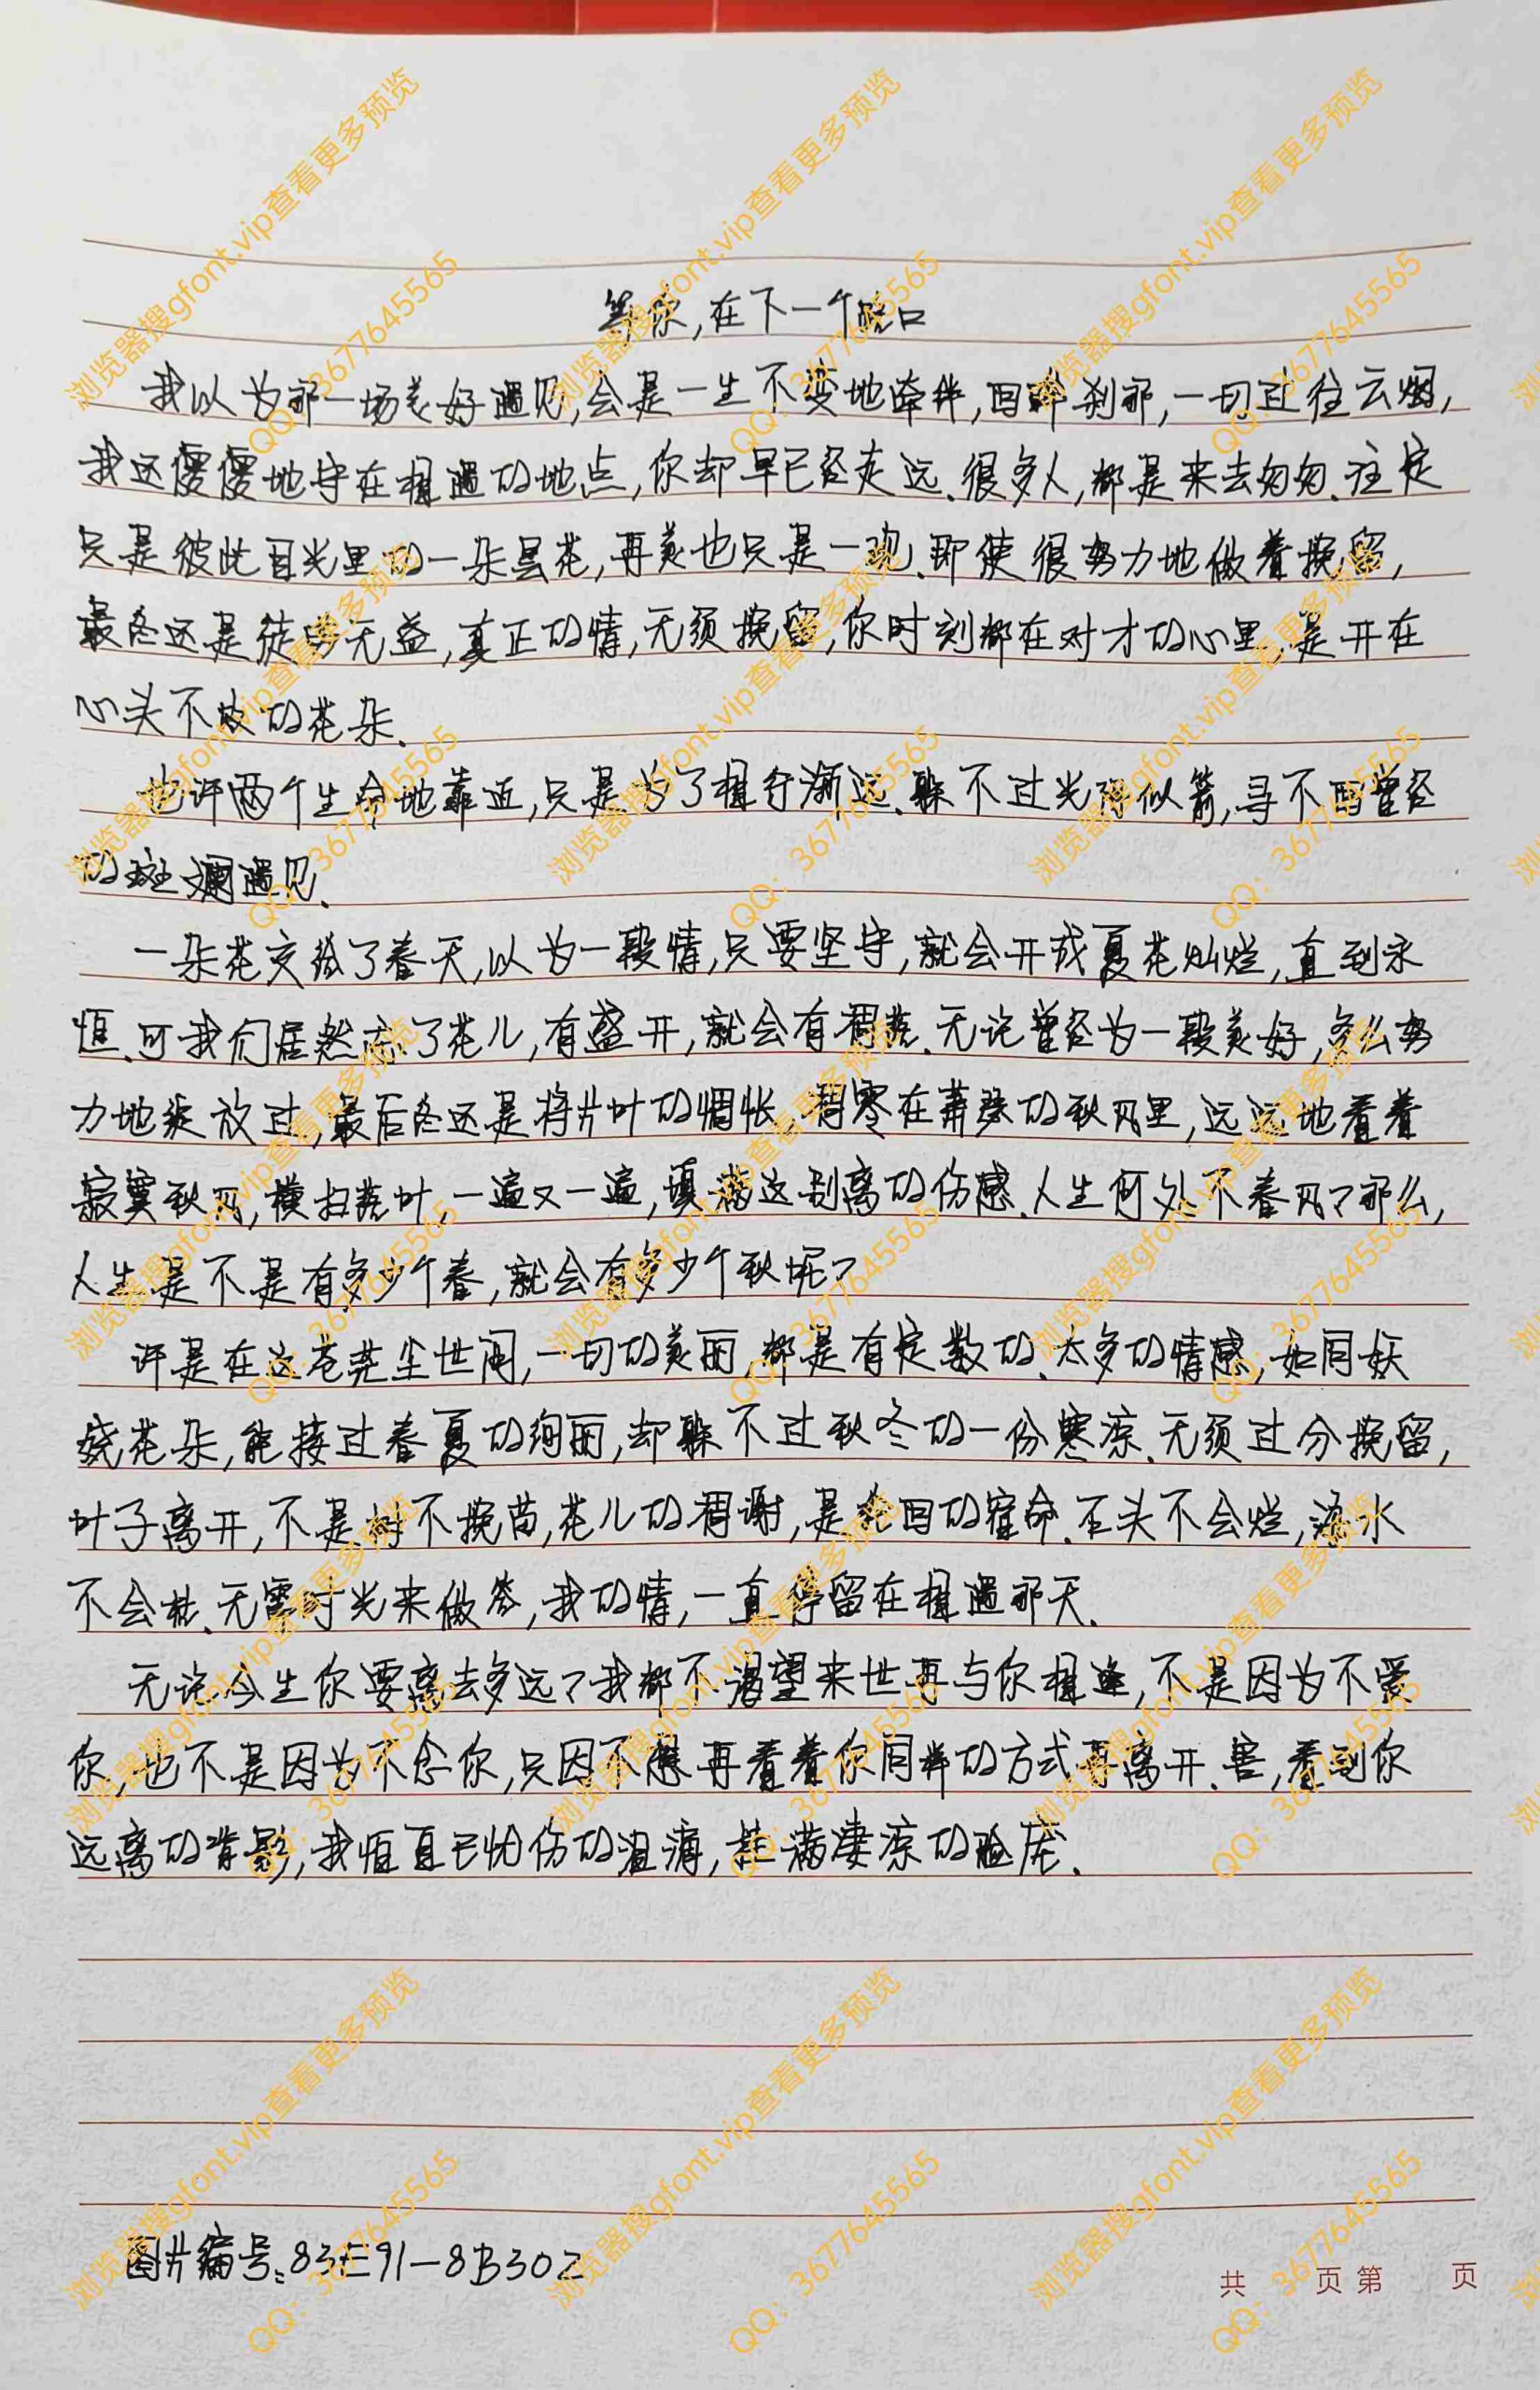 等你,在下一个路口
我以为那一场美好遇见,会是一生不变地牵绊,回眸刹那,一切过往云烟,
我还傻傻地守在相遇的地点,你却早已经走远.很多人,都是来去匆匆.注定
只是彼此目光里的一朵昙花,再美也只是一现.即使很努力地做着挽留,
最终还是徒劳无益,真正的情,无须挽留,你时刻都在对才的心里.是开在
心头不败的花朵.
也许两个生命地靠近,只是为了相行渐远.躲不过光阴似箭,寻不回曾经
的斑斓遇见.
一朵花交给了春天,以为一段情,只要坚守,就会开成夏花灿烂,直到永
恒.可我们居然忘了花儿,有盛开,就会有凋落.无论曾经为一段美好,多么努
力地绽放过,最后终还是将片叶的惆怅,凋零在萧瑟的秋风里,远远地看着
寂寞秋风,横扫落叶,一遍又一遍,填满这别离的伤感.人生何处不春风?那么,
人生是不是有多少个春,就会有多少个秋呢?
许是在这苍茫尘世间,一切的美丽,都是有定数的.太多的情感,如同妖
娆花朵,能接过春夏的绚丽,却躲不过秋冬的一份寒凉.无须过分挽留,
叶子离开,不是树不挽留,花儿的凋谢,是轮回的宿命.石头不会烂,海水
不会枯.无需时光来做答,我的情,一直停留在相遇那天.
无论今生你要离去多远?我都不渴望来世再与你相逢,不是因为不爱
你,也不是因为不念你,只因不想再看着你同样的方式再离开.害,看到你
远离的背影,我恒自己忧伤的泪滴,挂满凄凉的脸庞.
图片编号:83E91-8B302
共 页 第 页
浏览器搜gfont.vip查看更多预览
QQ: 3677645565